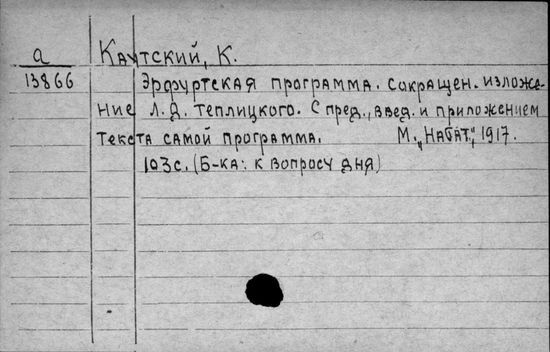 а Каутский, К.
13866 Эрфуртская программа. Сокращен. изложе-
ние Л.Д. Теплицкого. С пред., введ. и приложением
текста самой программа. М. „Набат", 1917.
103с. (Б-ка: к вопросу дня)